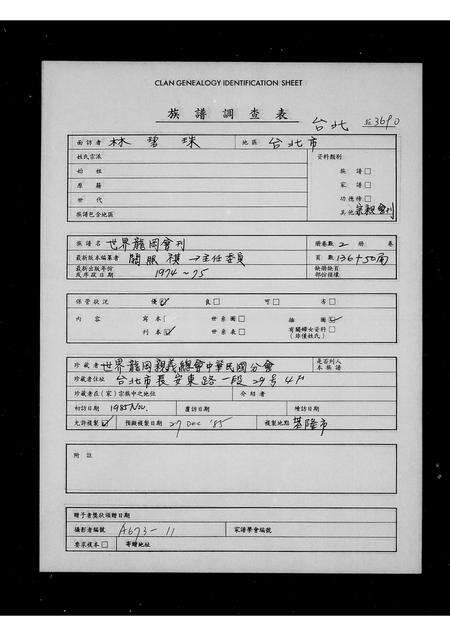 CLAN GENEALOGY IDENTIFICATION SHEET
族譜調查表
台北
面訪者 林碧珠 地區 台北市
姓氏宗派 資料類別
始祖 族譜□
原籍 家譜□
世代 功德榜□
族譜包含地區 其他 宗親會刊
族譜名 世界龍岡會刊 冊卷數 2 冊 卷
最新版本編纂者 關服祺 →主任委員 頁數 136+50面
最新出版年份 1974~75 缺損缺頁
或序政日期 部份複樣
保管狀況 優☑ 良□ 可□ 劣□
內容 寫本□ 世系圖□ 插圖☑
刊本☑ 世系表□ 有關婦女資料□
(非僅姓氏)
珍藏者 世界龍岡親義總會中華民國分會 是否列入
本族譜
珍藏者住址 台北市長安東路一段29号4F
珍藏者在(家)宗族中之地位 介紹者
初訪日期 1985 Nov. 覆訪日期 續訪日期
允許複製☑ 預擬複製日期 27 Dec '85 複製地點 基隆市
附註
贈予者獎狀頒贈日期
攝影者編號 A673-11 家譜學會編號
要求複本□ 寄贈地址